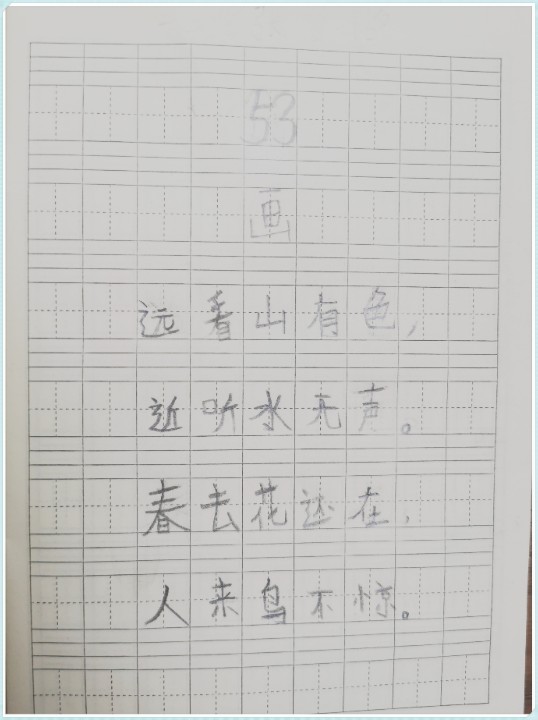 53
画
远看山有色,
近听水无声。
春去花还在,
人来鸟不惊。